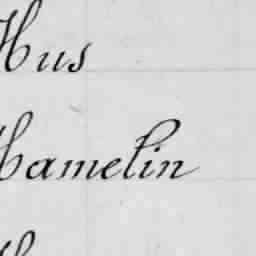 Hus
Hamelin